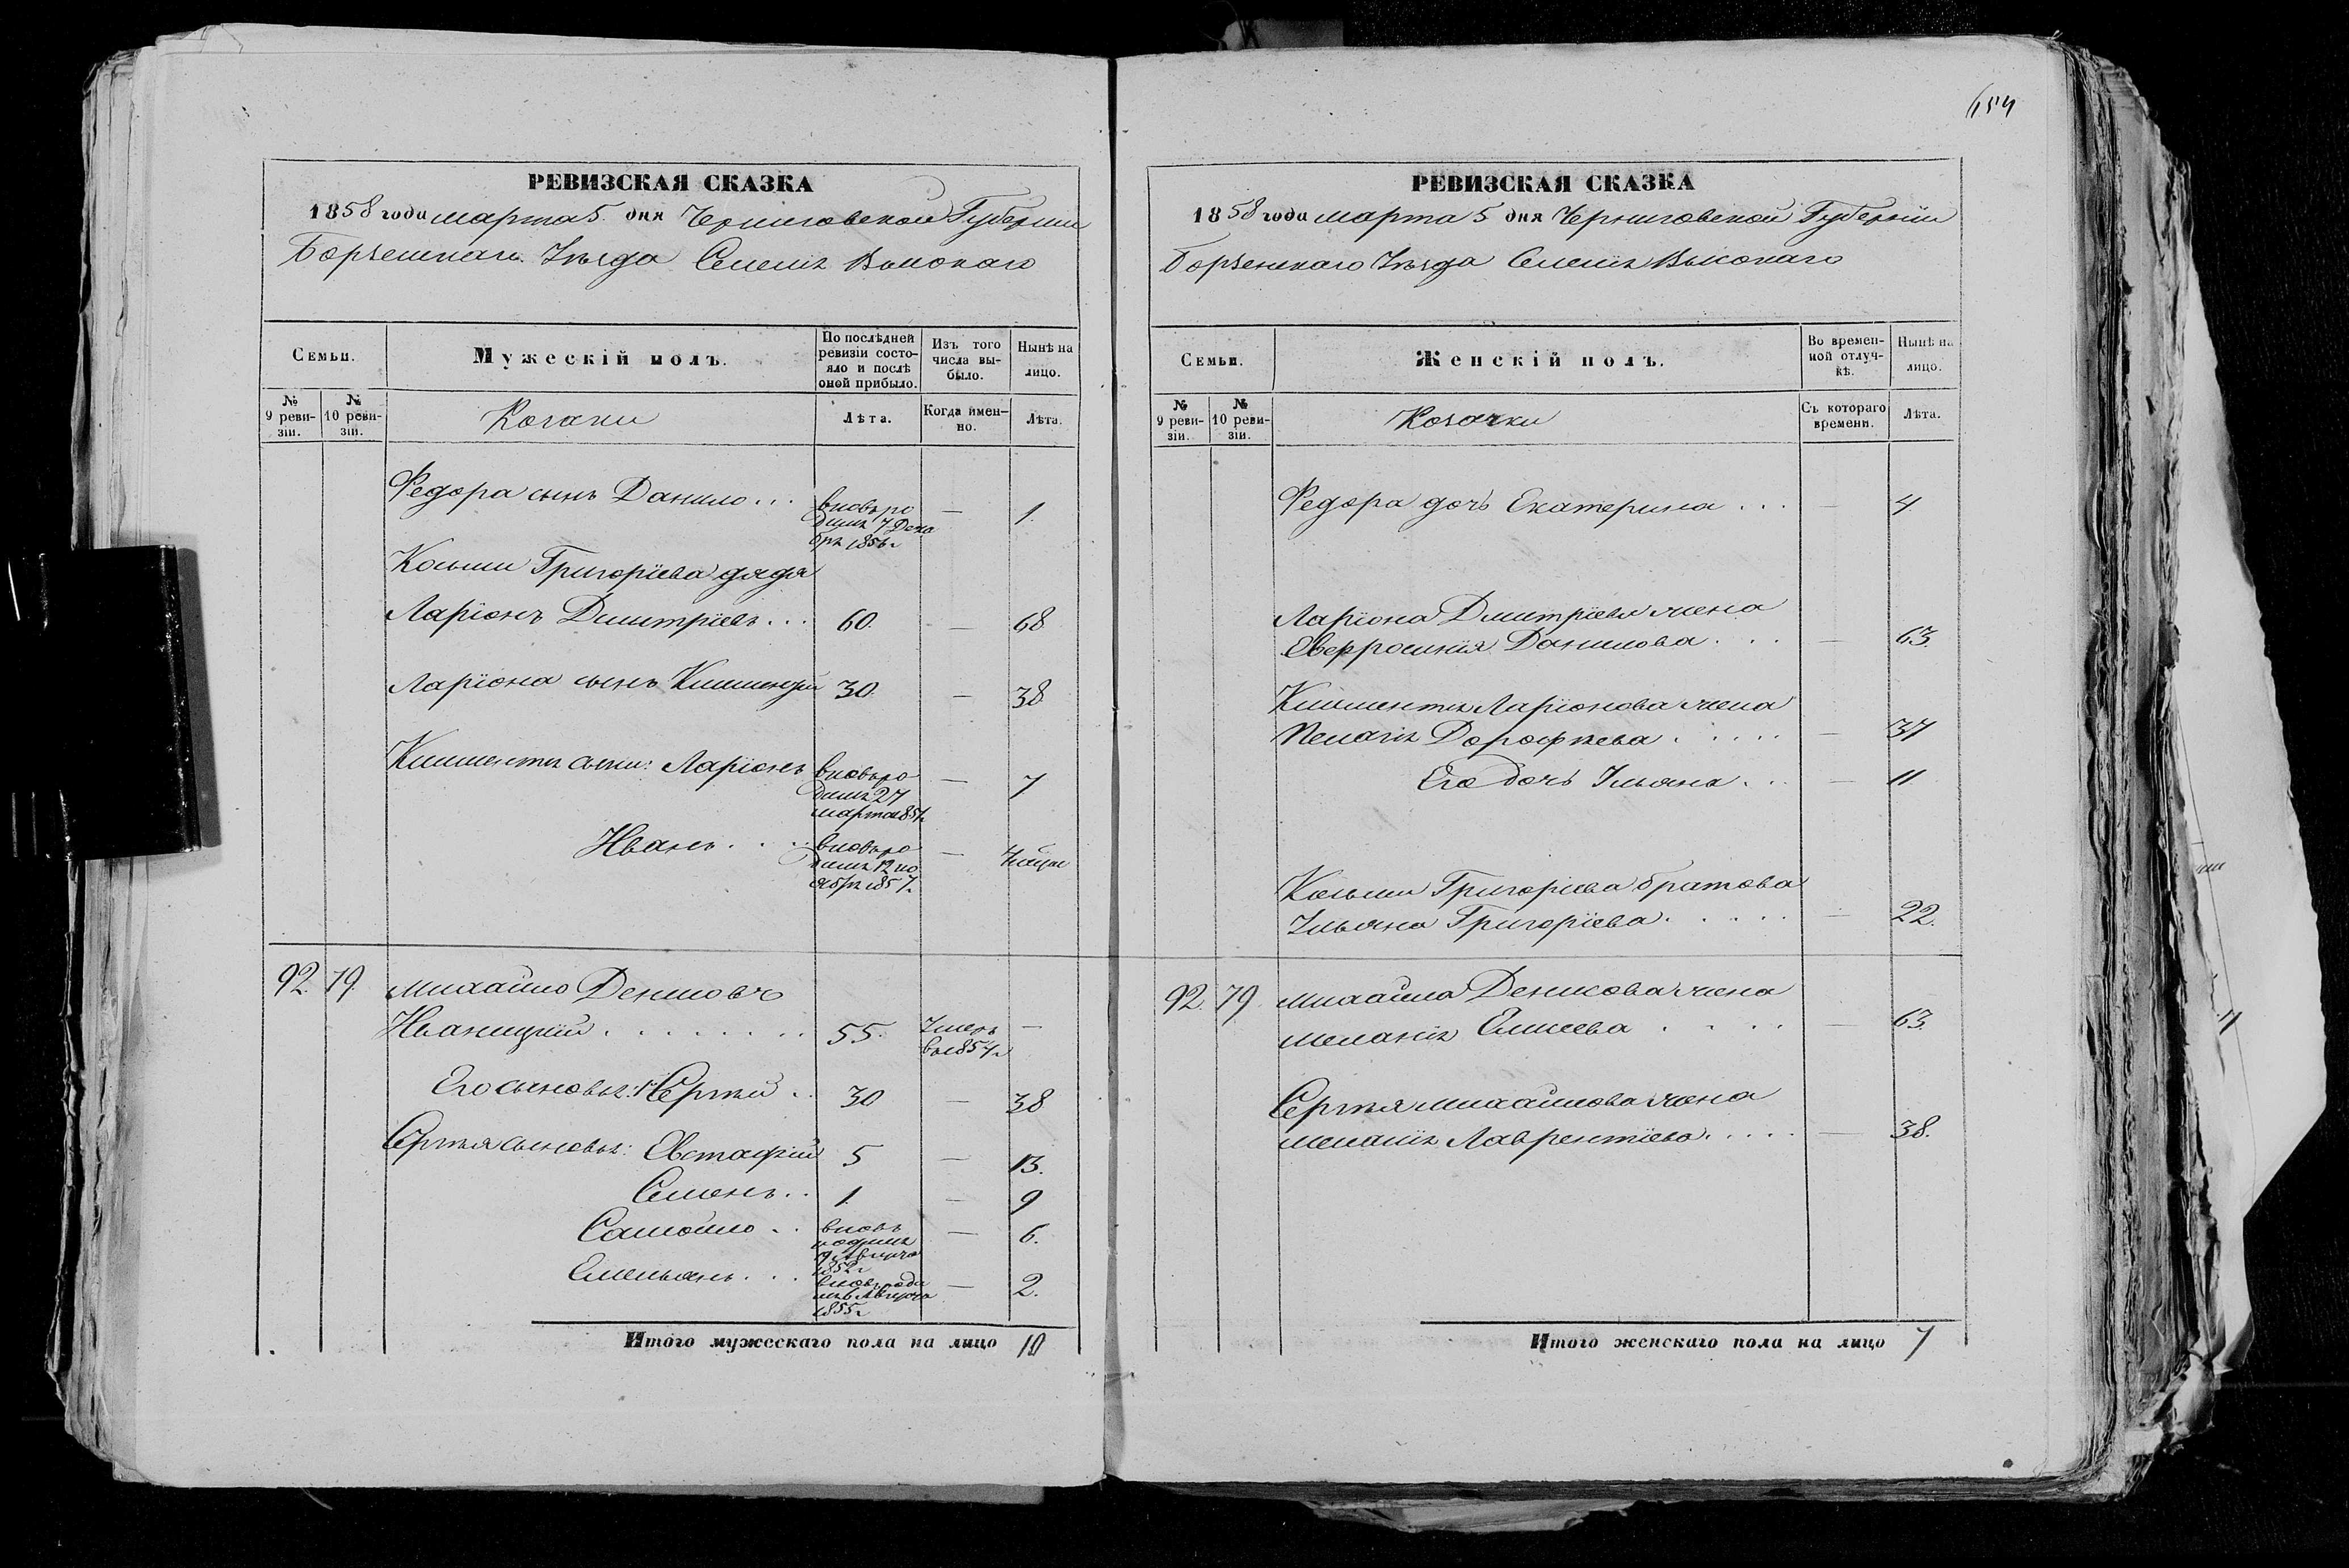 654
РЕВИЗСКАЯ СКАЗКА
1858 года марта 5. дня Черниговской Губернии
Борзенскаго Уезда Селенія Высокаго
Семьи.
Мужескій полъ.
По послѣдней ревизіи состояло и послѣ оной прибыло.
Изъ того числа выбыло.
Нынѣ на лицо.
№ 9 ревизіи.
№ 10 ревизіи.
Козаки
Лѣта.
Когда именно.
Лѣта.
Федора сынъ Данило . . . вновь родился 7 Декабря 1856 г — 1.
Козьмы Григоріева дядя
Ларіонъ Дмитріевъ . . . 60. — 68
Ларіона сынъ Климентій 30. — 38
Климентія сыны: Ларіонъ вновь родился 27 марта 1851 г — 7
Иванъ . . . вновь родился 12 ноября 1857. —
92. 79. Михайло Денисовъ
Иваницкій . . . . . . . . 55. Умеръ въ 1854 г —
Его сыновья: 1й Сергѣй . . 30 — 38
Сергѣя сыновья: Евстафій 5 — 13.
Семенъ . . 1. — 9
Самойло . . вновь родился 19 Августа 1852 г — 6.
Емельянъ . . . вновь родился Августа 1855 г — 2.
Итого мужескаго пола на лицо 10
РЕВИЗСКАЯ СКАЗКА
1858 года марта 5 дня Черниговской Губерніи
Борзенскаго Уезда Селенія Высокаго
Семьи.
Женскій полъ.
Во временной отлучкѣ.
Нынѣ на лицо.
№ 9 ревизіи.
№ 10 ревизіи.
Козачки
Съ котораго времени.
Лѣта.
Федора дочь Екатерина . . . — 4
Ларіона Дмитріева жена
Евфросинія Данилова . . . — 63.
Климентія Ларіонова жена
Пелагія Дорофѣева . . . . . — 37
Его дочь Ульяна . . . — 11
Козьмы Григоріева братова
Ульяна Григоріева . . . . . — 22.
92. 79. Михайла Денисова жена
Меланія Елисеева . . . . — 63.
Сергѣя Михайлова жена
Меланія Лаврентіева . . . . . — 38.
Итого женскаго пола на лицо 7